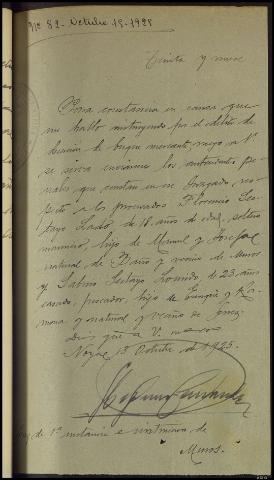 Nº 82 - Octubre 18-1925
Treinta y nueve
Para constancia en causa que
me hallo instruyendo por el delito de
de buque mercante, ruego a V.
se sirva enviarme los antecedentes pe-
nales que consten en ese Juzgado, res-
pecto a los procesados Florencio Ses-
tayo Lado, de 18 años de edad, soltero
marinero, hijo de Manuel y Josefa
natural de y vecino de Muros
y Sabino Sestayo Lourido, de 23 años
casado, pescador, hijo de y Ra-
mona y natural y vecino de
Dios gue a V. m
Noya 13 Octubre de 1925.
Juez de 1ª instancia e instrucción de
Muros.